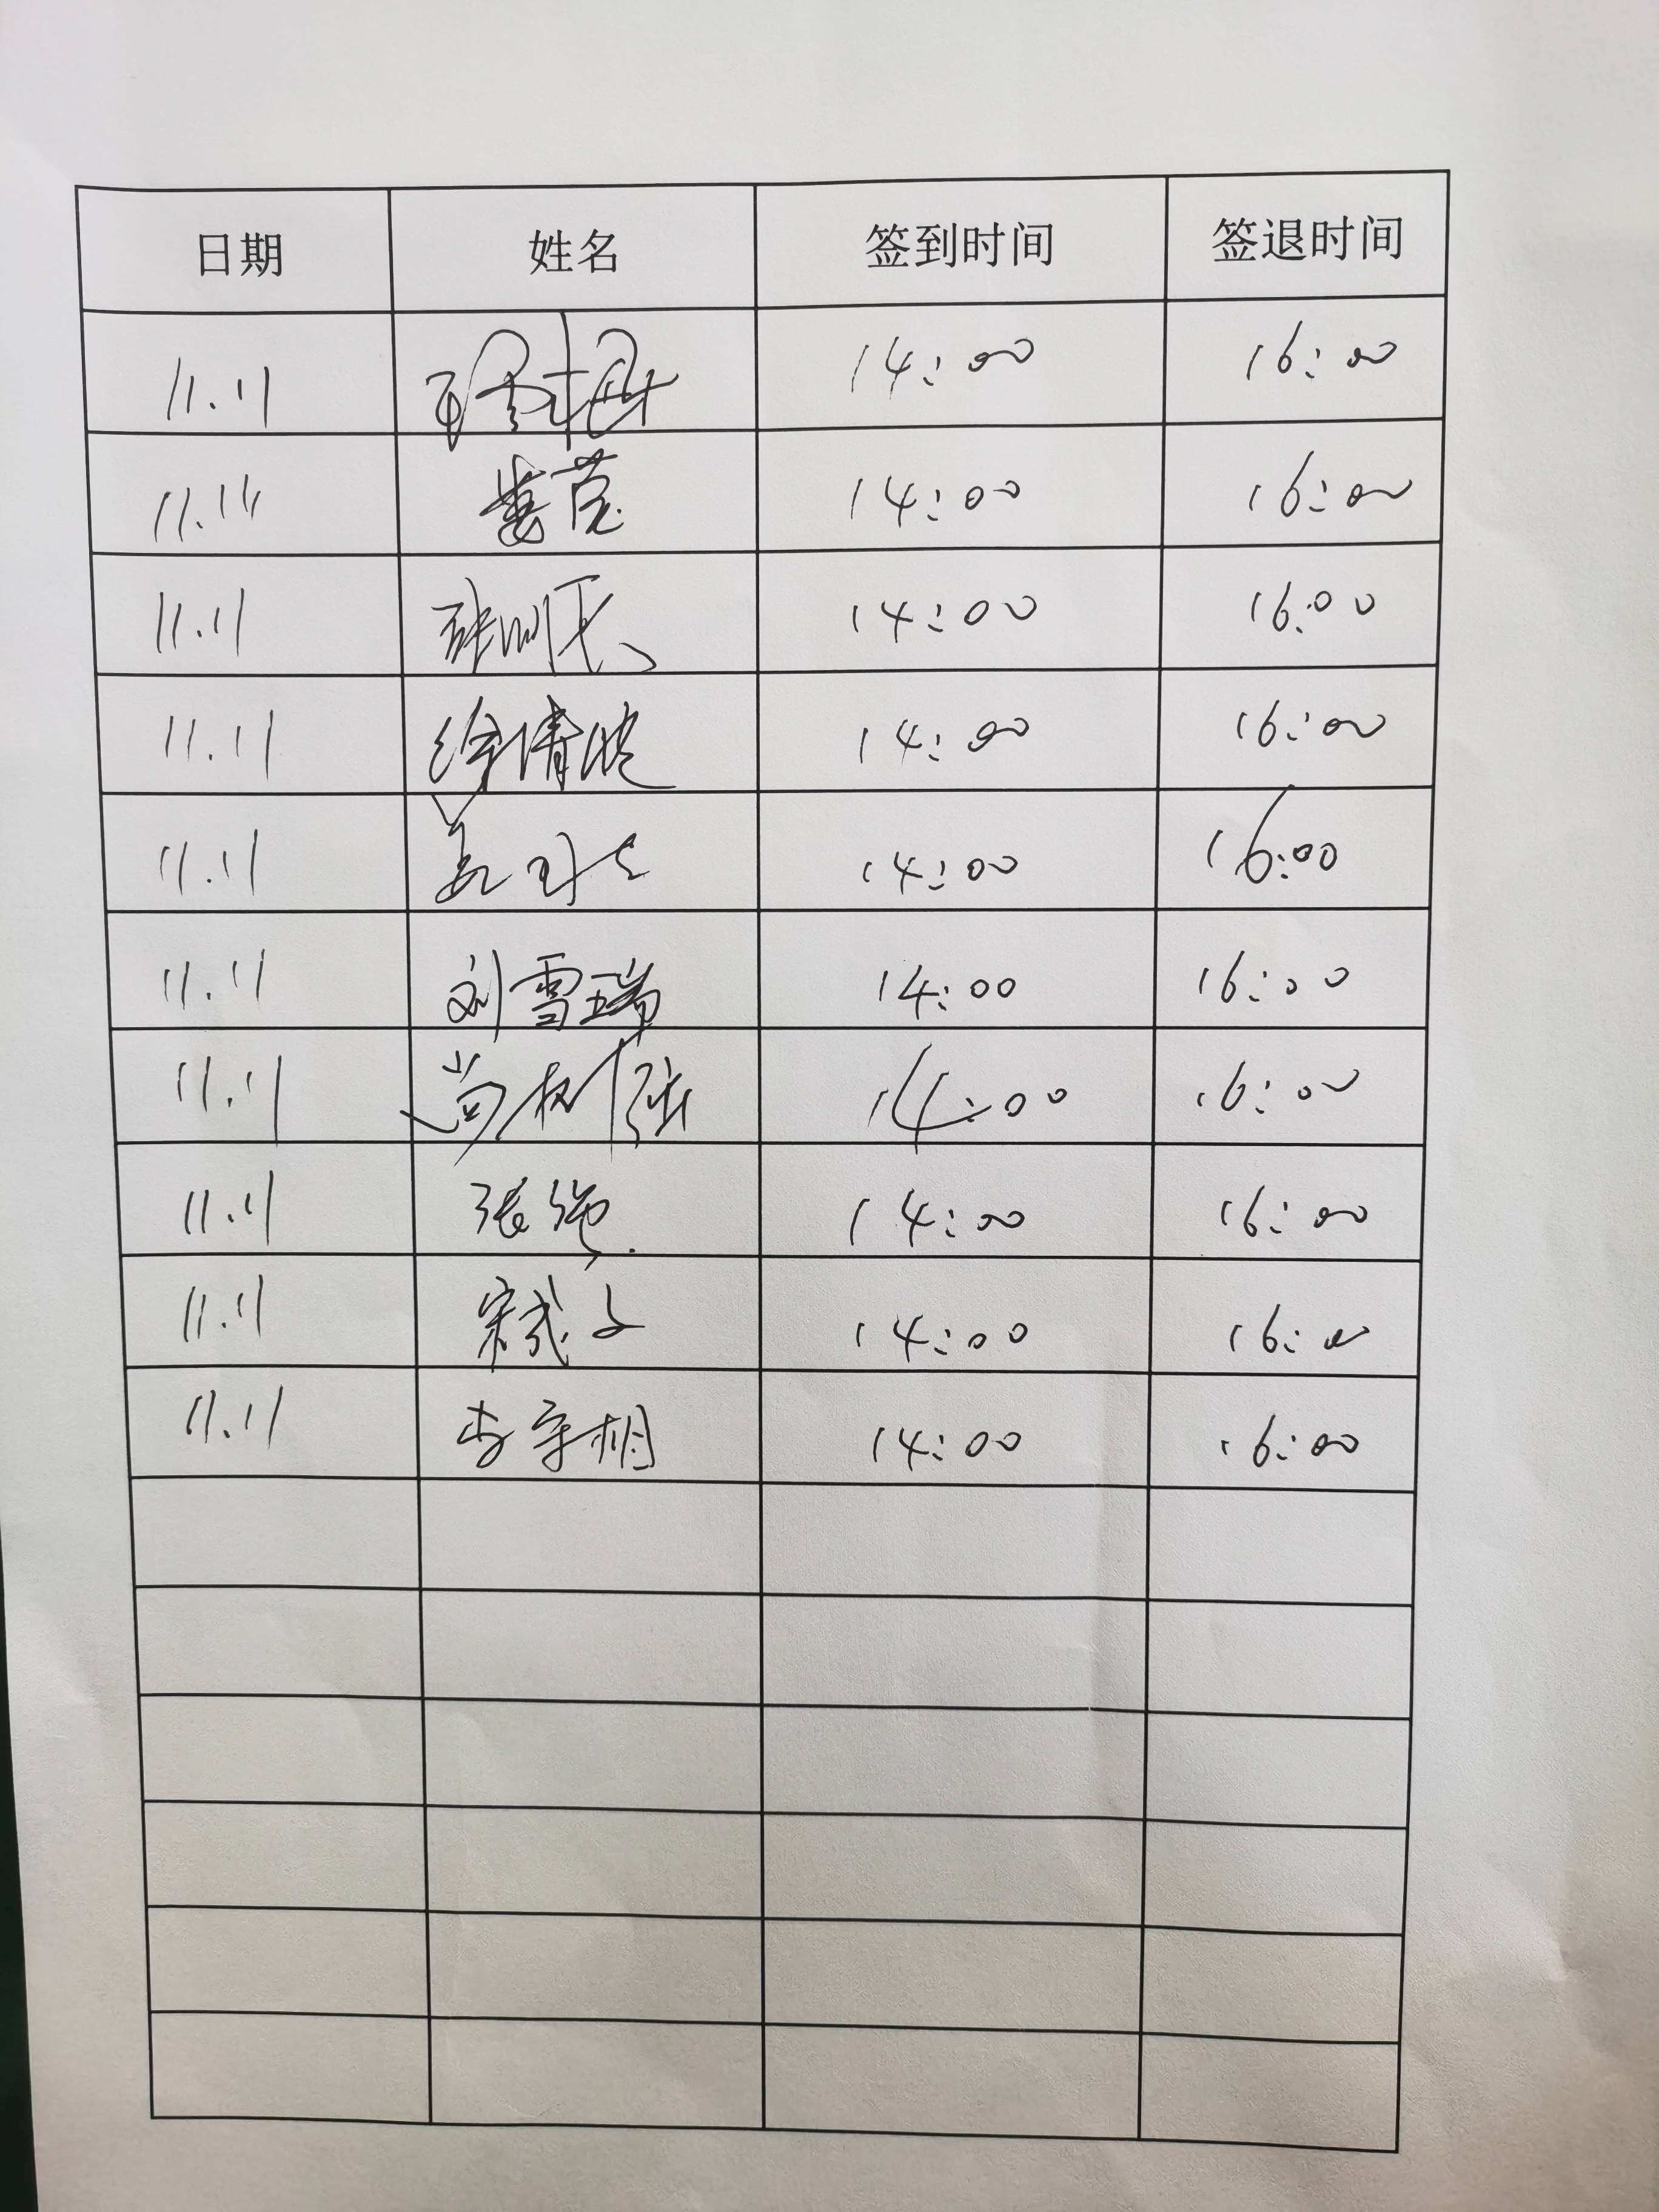 日期 姓名 签到时间 签退时间
11.11 14:00 16:00
11.11 娄莹 14:00 16:00
11.11 14:00 16:00
11.11 徐倩 14:00 16:00
11.11 姜 14:00 16:00
11.11 刘雪瑞 14:00 16:00
11.11 尚树 14:00 16:00
11.11 张艳 14:00 16:00
11.11 宋 14:00 16:00
11.11 李宇桐 14:00 16:00